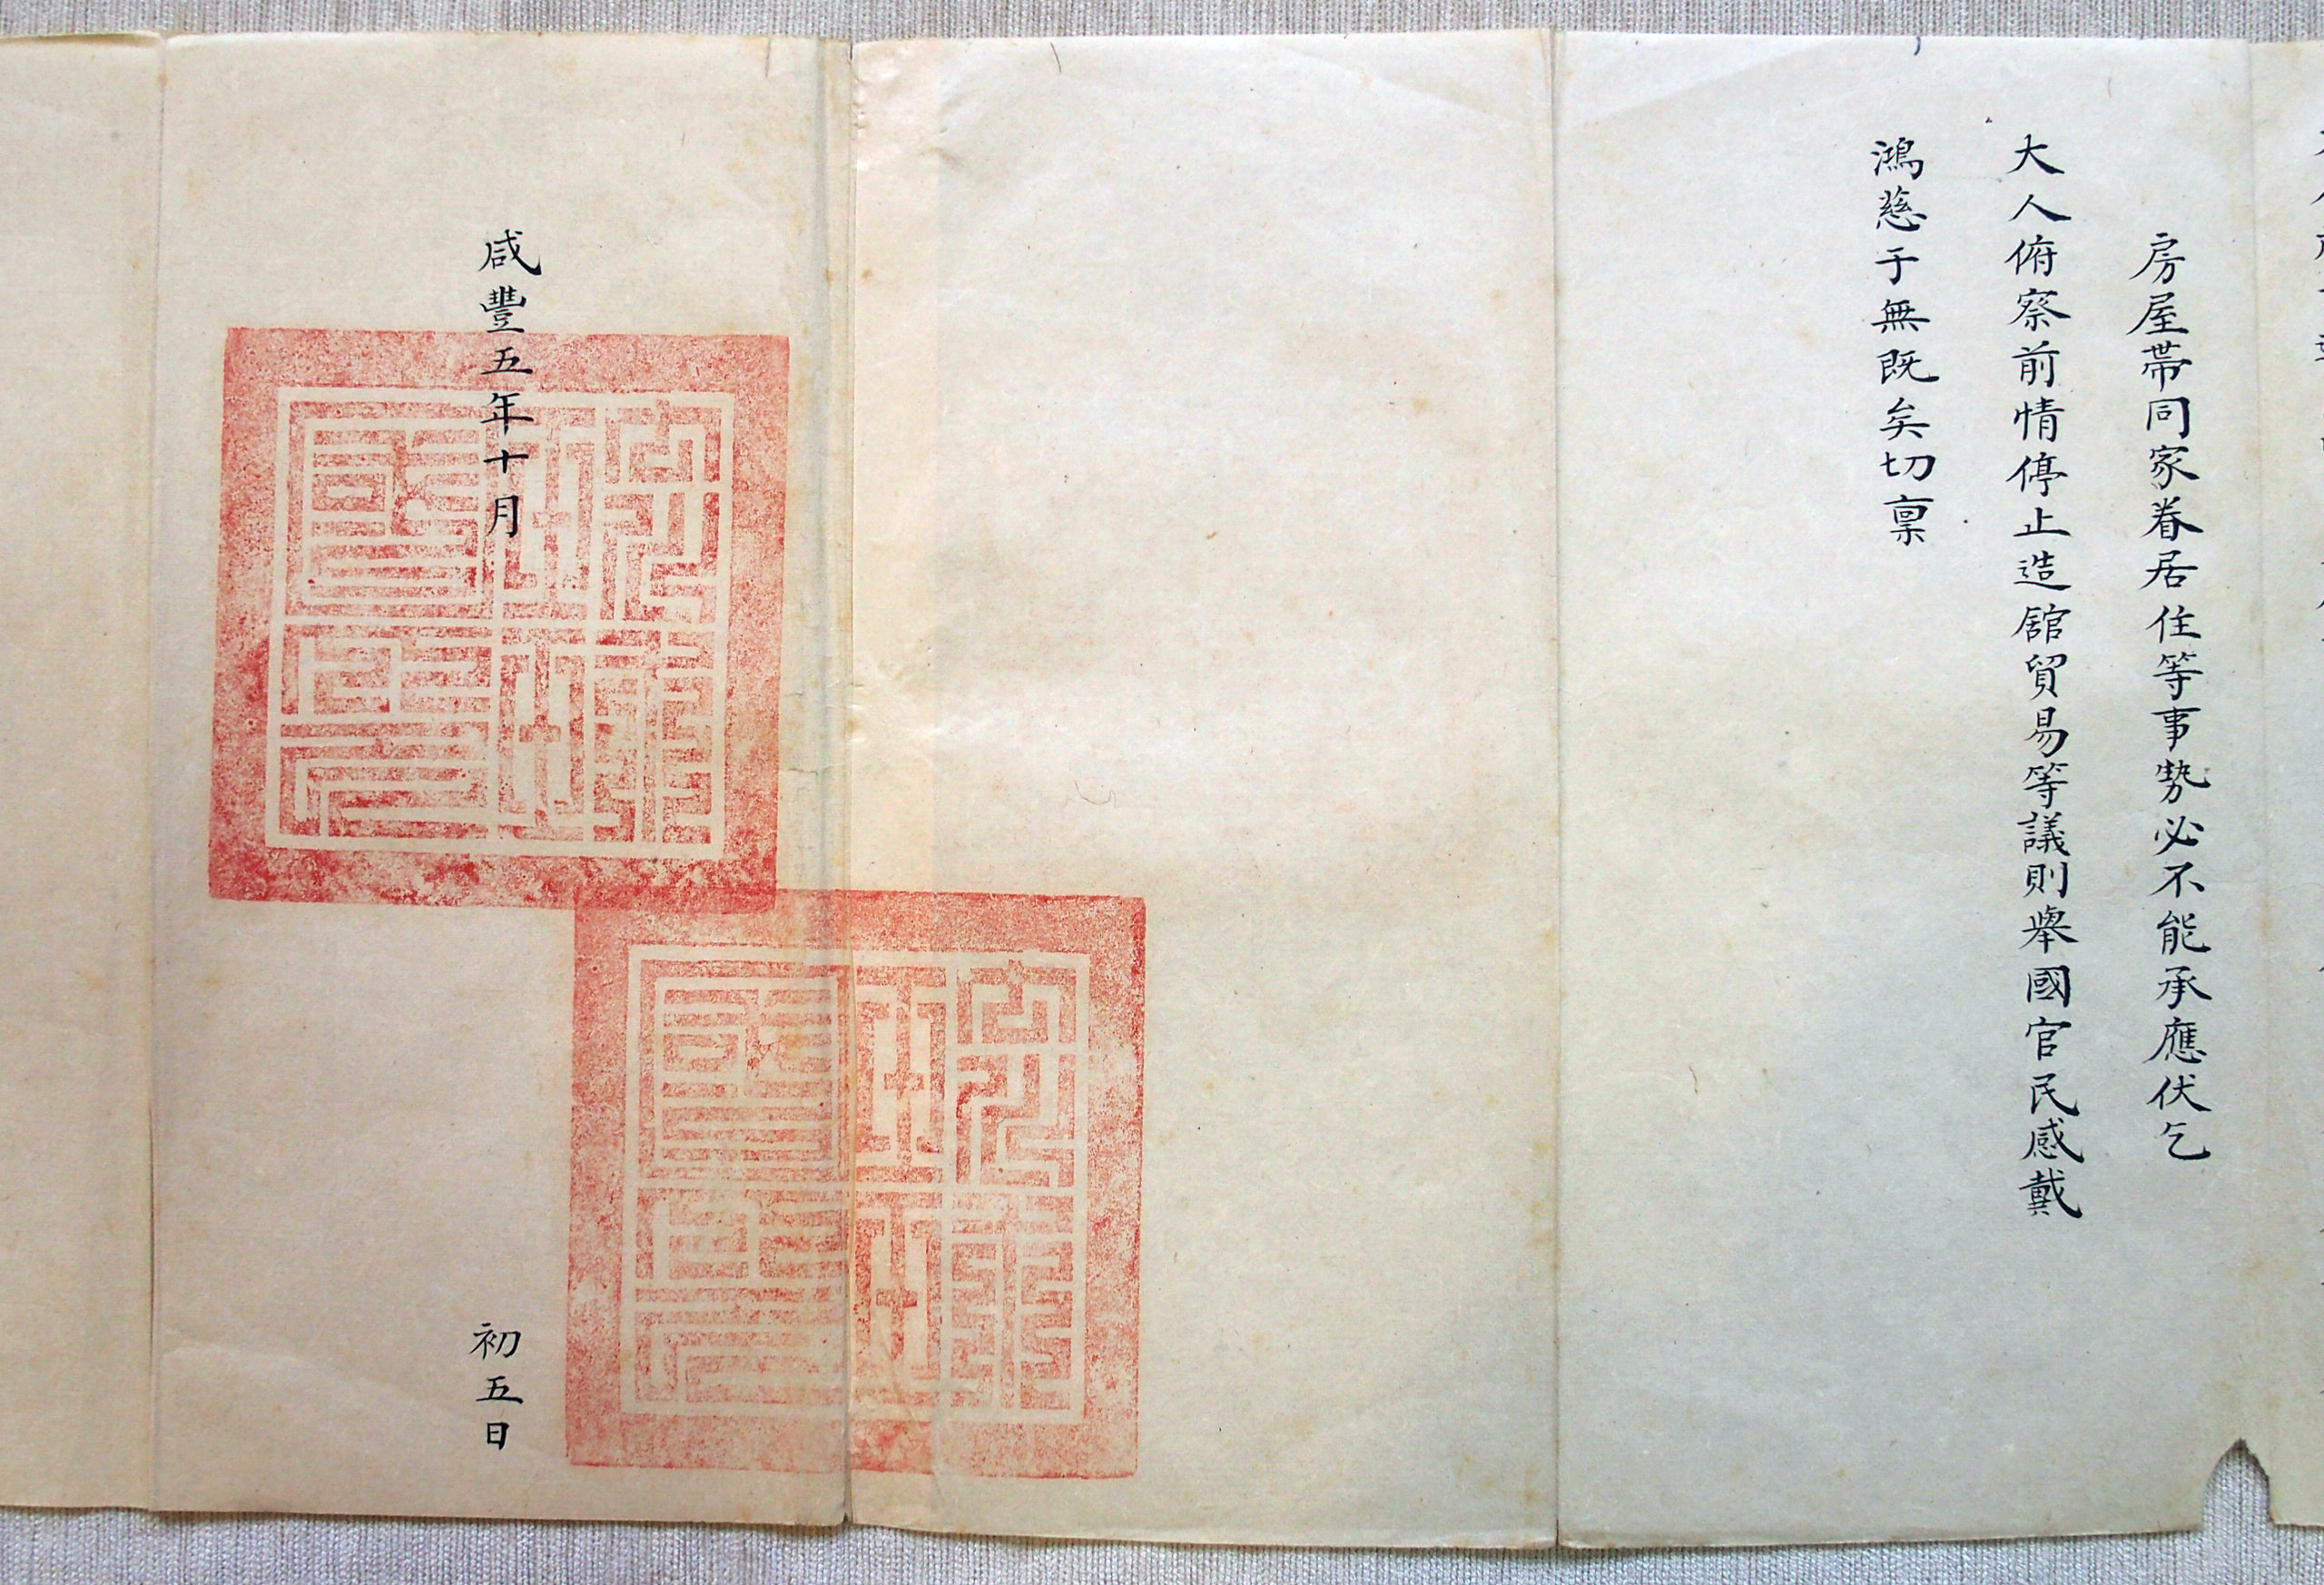 房屋帶同家眷居住等事勢必不能承應伏乞
大人俯察前情停止造舘貿易等議則舉國官民感戴
鴻慈于無既矣切稟
咸豐五年十月
初五日